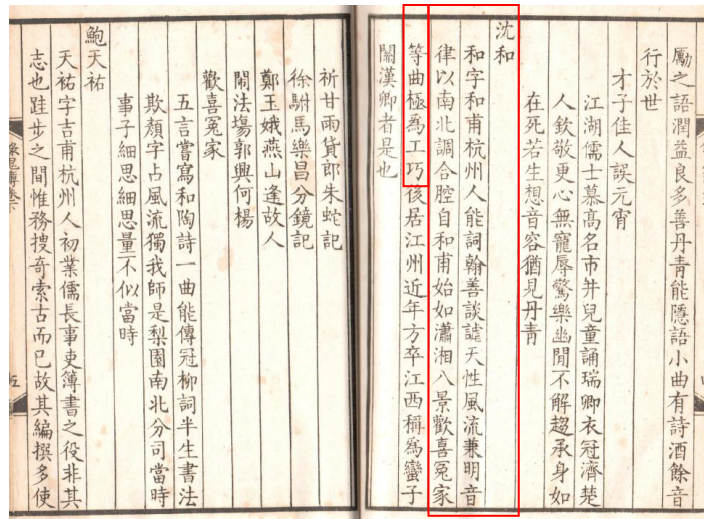 勵之語潤益良多善丹青能隱語小曲有詩酒餘音
行於世
才子佳人誤元宵
江湖儒士慕高名市井兒童誦瑞卿衣冠濟楚
人欽敬更心無寵辱驚樂幽閒不解趨承身如
在死若生想音容猶見丹青
沈和
和字和甫杭州人能詞翰善談謔天性風流兼明音
律以南北調合腔自和甫始如瀟湘八景歡喜寃家
等曲極爲工巧後居江州近年方卒江西稱爲蠻子
關漢卿者是也
祈甘雨貨郎朱蛇記
徐駙馬樂昌分鏡記
鄭王娥燕山逢故人
鬧法塲郭興何楊
歡喜寃家
五言嘗寫和陶詩一曲能傳冠柳詞半生書法
欺顏字占風流獨我師是梨園南北分司當時
事子細思細思量不似當時
鮑天祐
天祐字吉甫杭州人初業儒長事吏簿書之役非其
志也跬步之間惟務搜奇索古而已故其編撰多使